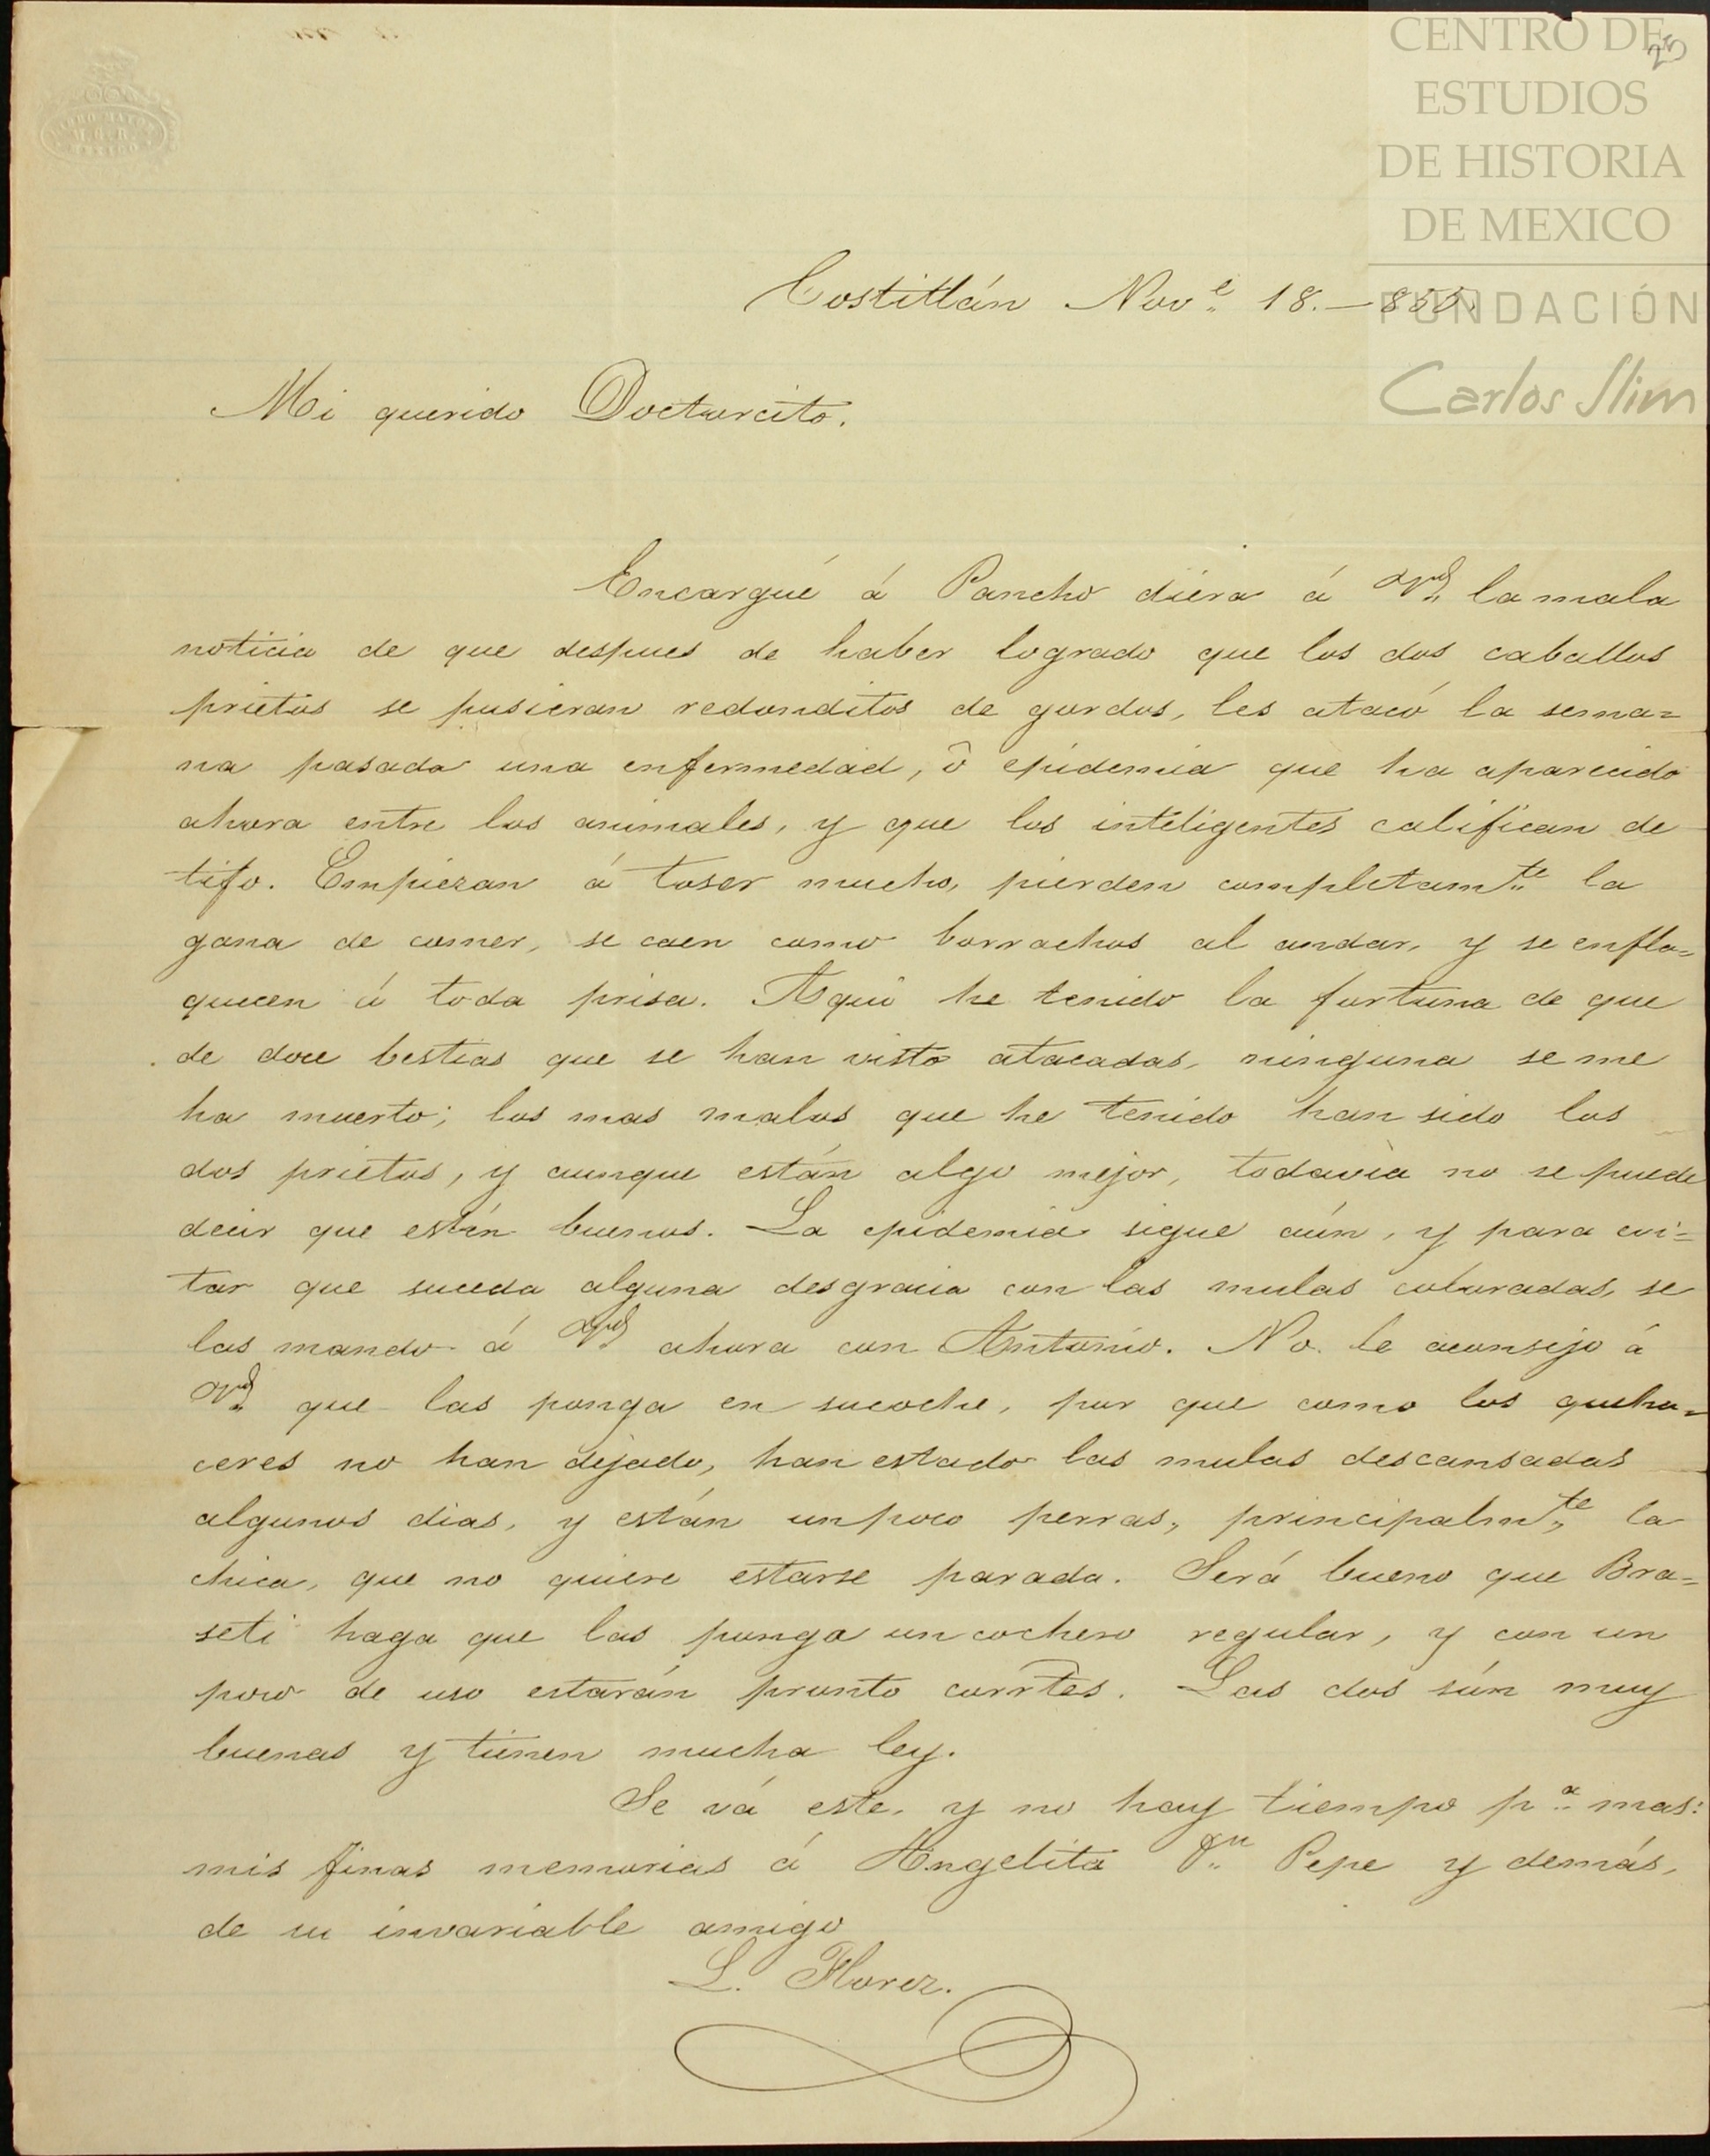 CENTRO DE
ESTUDIOS
DE HISTORIA
DE MEXICO
FUNDACIÓN
Carlos Slim
25
Costitlán Nov.e 18.–855.
Mi querido Doctorcito.
Encargué á Pancho diera á Vd. la mala
noticia de que despues de haber logrado que los dos caballos
prietos se pusieran redonditos de gordos, les atacó la sema=
na pasada una enfermedad, ó epidemia que ha aparecido
ahora entre los animales, y que los inteligentes califican de
tifo. Empiezan á toser mucho, pierden completam.te la
gana de comer, se caen como borrachos al andar, y se enfla=
quecen á toda prisa. Aquí he tenido la fortuna de que
de doce bestias que se han visto atacadas, ninguna se me
ha muerto; los mas malos que he tenido han sido los
dos prietos, y aunque están algo mejor, todavía no se puede
decir que estén buenos. La epidemia sigue aún, y para evi=
tar que suceda alguna desgracia con las mulas coloradas, se
las mando á Vd. ahora con Antonio. No le aconsejo á
Vd. que las ponga en su coche, por que como los queha=
ceres no han dejado, han estado las mulas descansadas
algunos dias, y están un poco perras, principalm.te la
chica, que no quiere estarse parada. Será bueno que Bra=
seti haga que las ponga un cochero regular, y con un
poco de uso estarán pronto corrtes. Las dos són muy
buenas y tienen mucha ley.
Se vá este, y no hay tiempo p.a mas:
mis finas memorias á Angelita Dn. Pepe y demás,
de su invariable amigo
L. Florez.